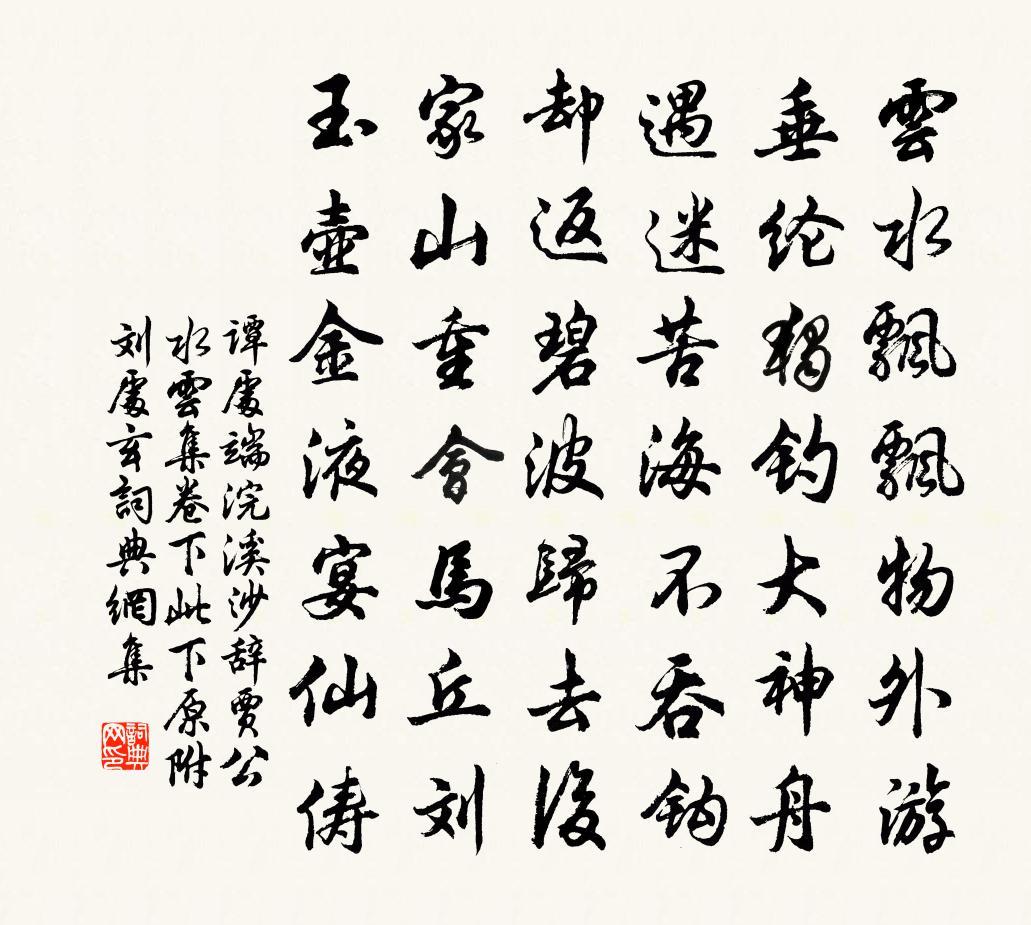 雲水飄飄物外游
垂纶獨钓大神舟
遇迷苦海不吞钩
却返碧波歸去後
家山重會馬丘刘
玉壺金液宴仙俦
谭處端浣溪沙辞賈公
水雲集卷下此下原附
刘處玄詞典網集
詞典网印